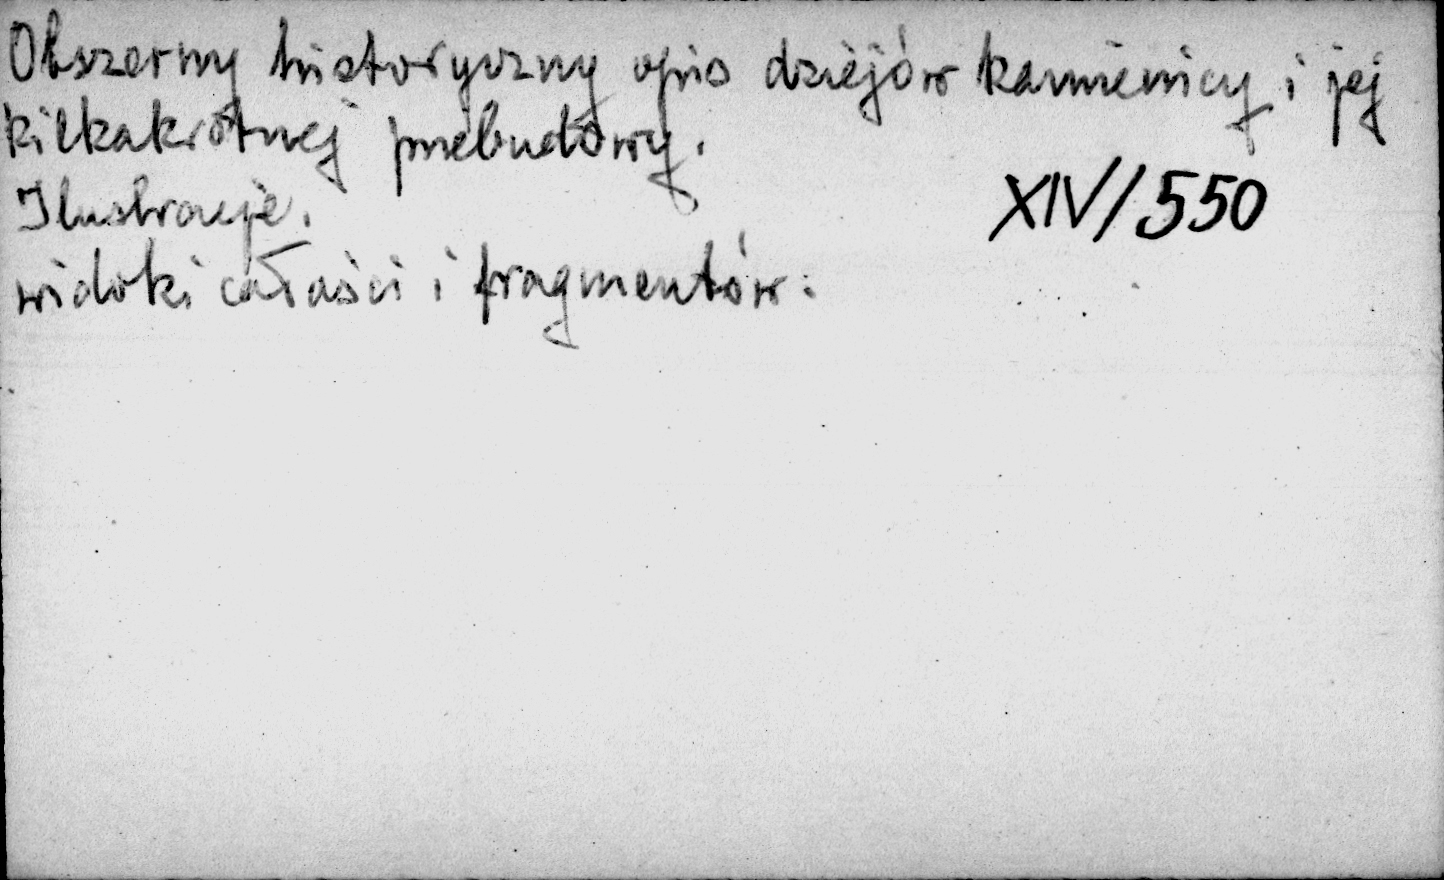 Obszerny historyczny opis dziejów kamienicy i jej
kilkakrotnej przebudowy.
Ilustracje.
XIV/550
widoki całości i fragmentów: